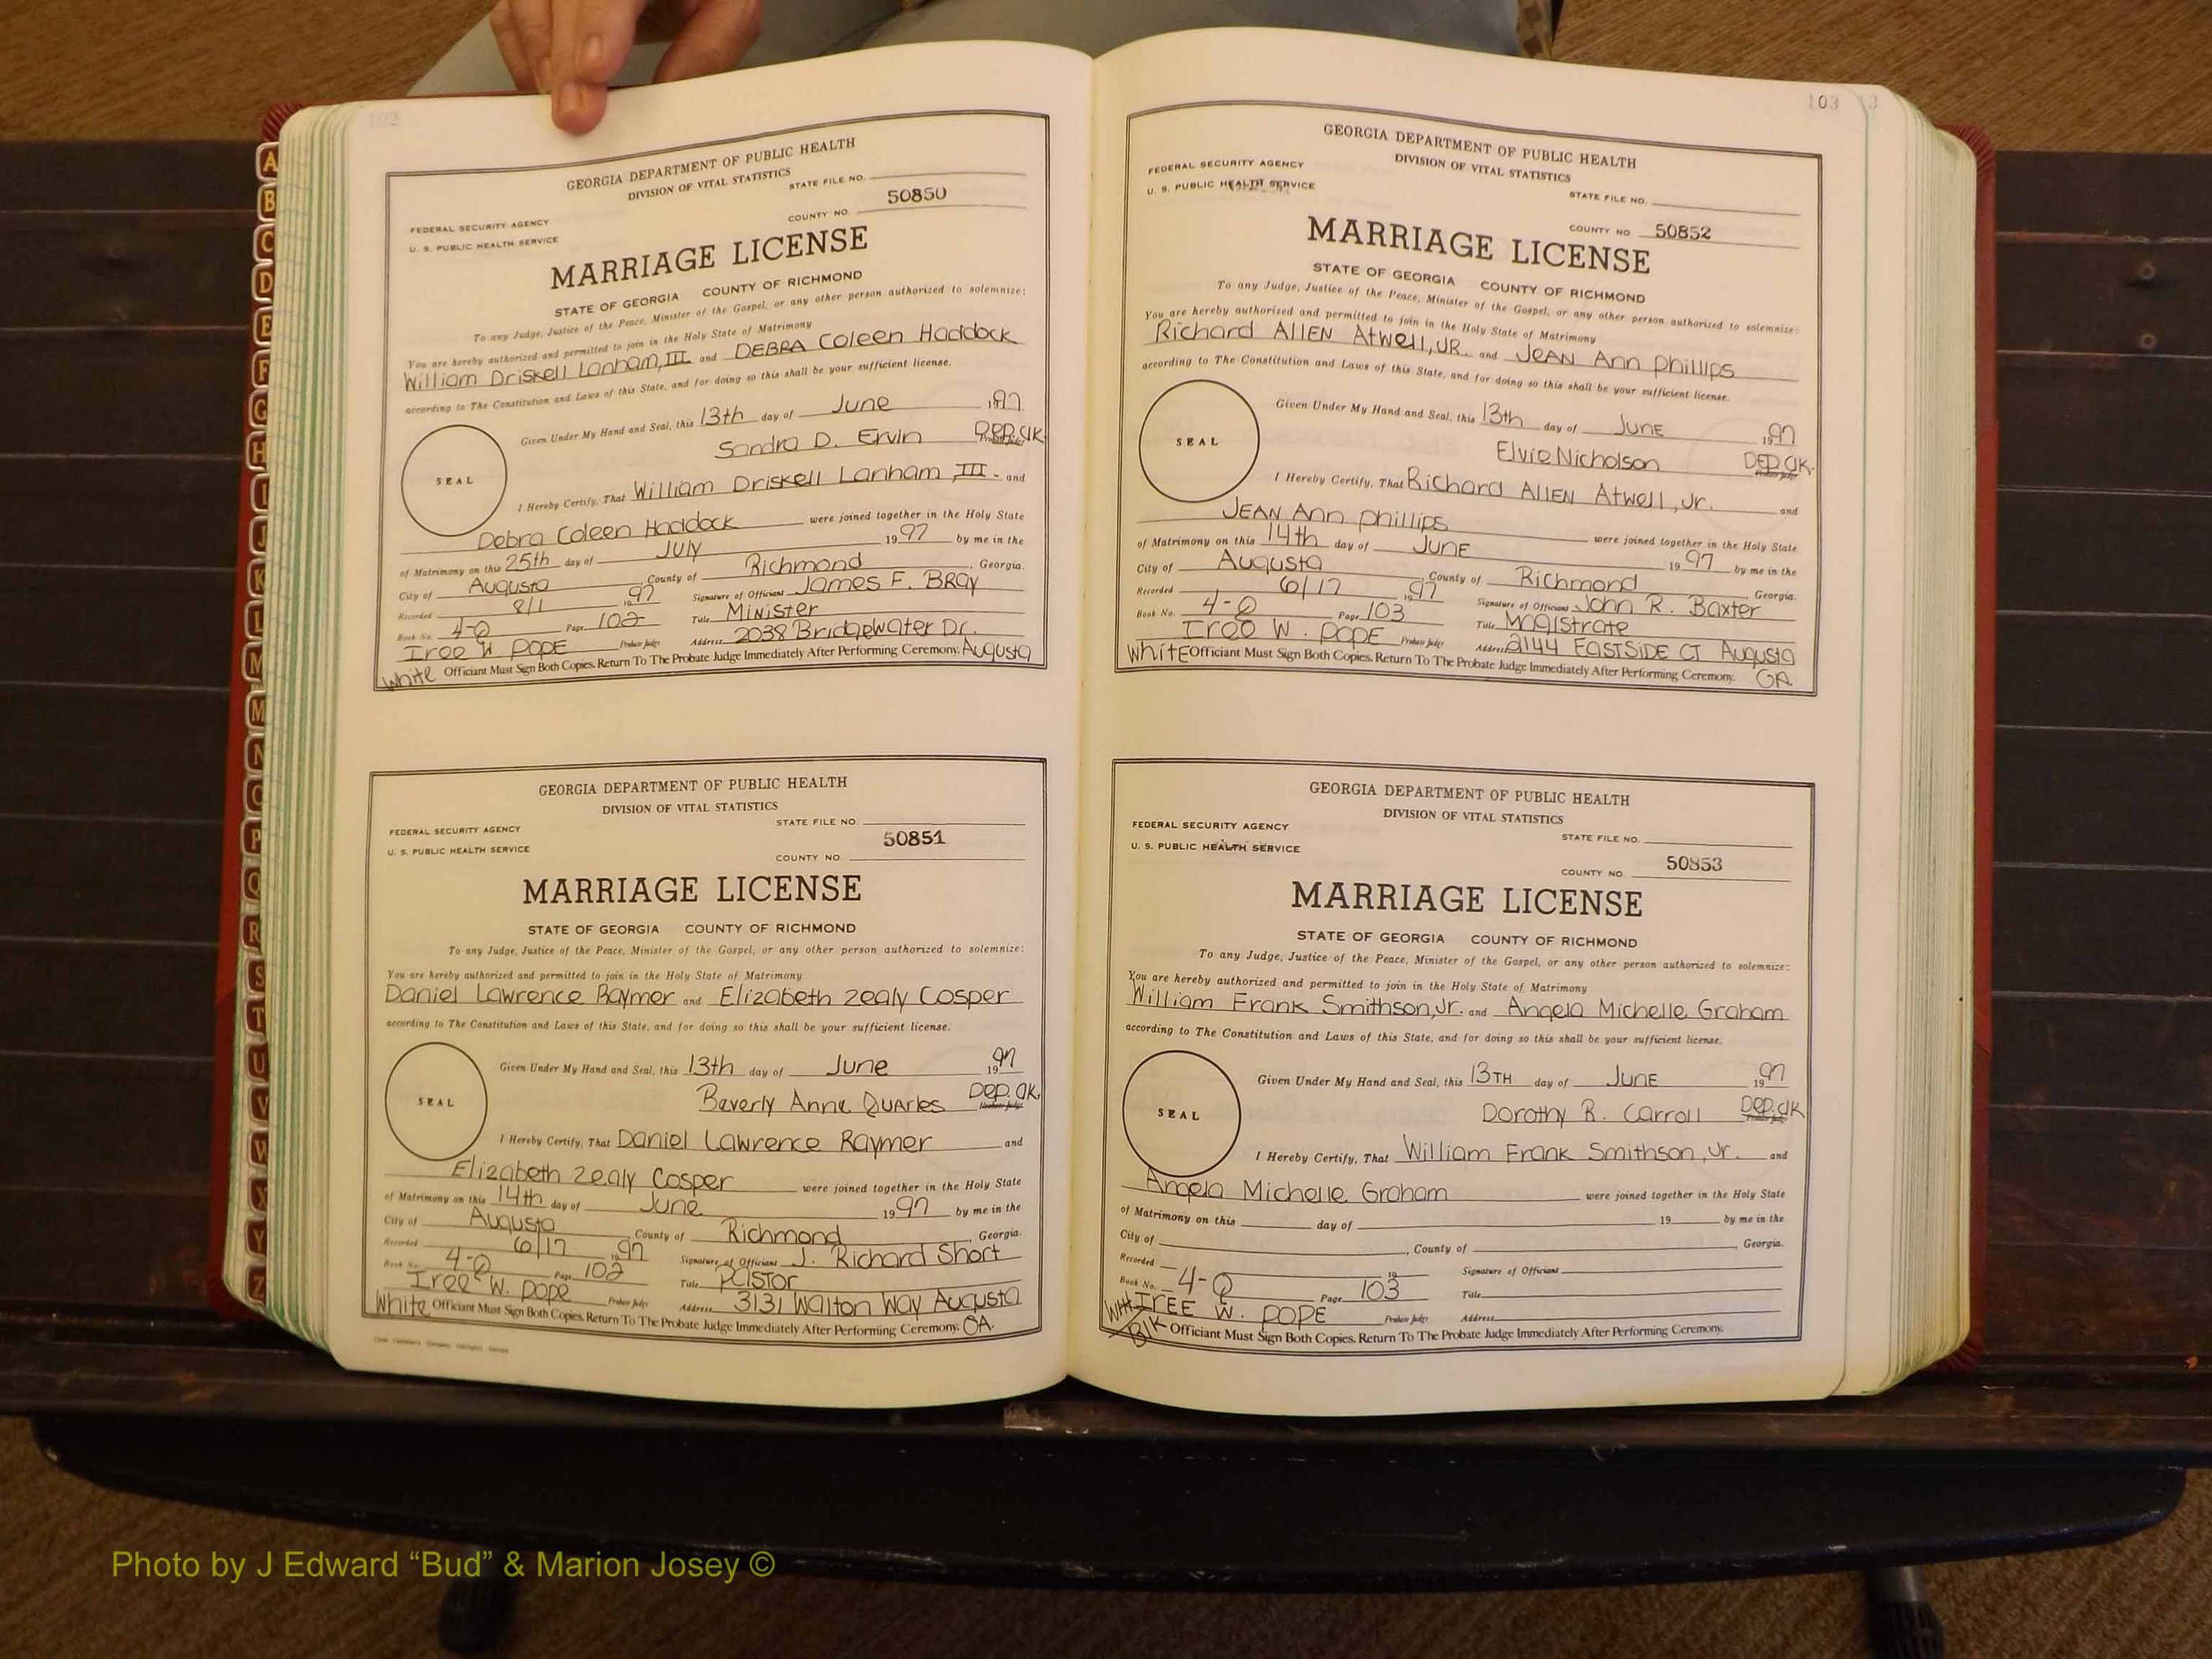 102
GEORGIA DEPARTMENT OF PUBLIC HEALTH
DIVISION OF VITAL STATISTICS
STATE FILE NO.
FEDERAL SECURITY AGENCY
U. S. PUBLIC HEALTH SERVICE
COUNTY NO. 50850
MARRIAGE LICENSE
STATE OF GEORGIA COUNTY OF RICHMOND
To any Judge, Justice of the Peace, Minister of the Gospel, or any other person authorized to solemnize:
You are hereby authorized and permitted to join in the Holy State of Matrimony
William Driskell Lanham, III and DEBRA Coleen Haddock
according to The Constitution and Laws of this State, and for doing so this shall be your sufficient license.
SEAL
Given Under My Hand and Seal, this 13th day of June 1997
Sandra D. Ervin DEP. CLK.
Probate Judge
I Hereby Certify, That William Driskell Lanham, III - and
Debra Coleen Haddock were joined together in the Holy State
of Matrimony on this 25th day of July 1997 by me in the
City of Augusta, County of Richmond, Georgia.
Recorded 8/1 1997 Signature of Officiant James F. BRAY
Book No. 4-Q Page 102 Title Minister
Iree W. POPE Probate Judge Address 2038 Bridgewater Dr.
White Officiant Must Sign Both Copies. Return To The Probate Judge Immediately After Performing Ceremony. Augusta
GEORGIA DEPARTMENT OF PUBLIC HEALTH
DIVISION OF VITAL STATISTICS
STATE FILE NO.
FEDERAL SECURITY AGENCY
U. S. PUBLIC HEALTH SERVICE
COUNTY NO. 50851
MARRIAGE LICENSE
STATE OF GEORGIA COUNTY OF RICHMOND
To any Judge, Justice of the Peace, Minister of the Gospel, or any other person authorized to solemnize:
You are hereby authorized and permitted to join in the Holy State of Matrimony
Daniel Lawrence Raymer and Elizabeth Zealy Cosper
according to The Constitution and Laws of this State, and for doing so this shall be your sufficient license.
SEAL
Given Under My Hand and Seal, this 13th day of June 1997
Beverly Anne Quarles DEP. CLK.
Probate Judge
I Hereby Certify, That Daniel Lawrence Raymer and
Elizabeth Zealy Cosper were joined together in the Holy State
of Matrimony on this 14th day of June 1997 by me in the
City of Augusta, County of Richmond, Georgia.
Recorded 6/17 1997 Signature of Officiant J. Richard Short
Book No. 4-Q Page 102 Title Pastor
Iree W. Pope Probate Judge Address 3131 Walton Way Augusta
White Officiant Must Sign Both Copies. Return To The Probate Judge Immediately After Performing Ceremony. GA.
103
GEORGIA DEPARTMENT OF PUBLIC HEALTH
DIVISION OF VITAL STATISTICS
FEDERAL SECURITY AGENCY
U. S. PUBLIC HEALTH SERVICE
STATE FILE NO.
COUNTY NO. 50852
MARRIAGE LICENSE
STATE OF GEORGIA COUNTY OF RICHMOND
To any Judge, Justice of the Peace, Minister of the Gospel, or any other person authorized to solemnize:
You are hereby authorized and permitted to join in the Holy State of Matrimony
Richard ALLEN Atwell, JR. and JEAN Ann Phillips
according to The Constitution and Laws of this State, and for doing so this shall be your sufficient license.
SEAL
Given Under My Hand and Seal, this 13th day of JUNE 1997
Elvie Nicholson DEP. CLK.
Probate Judge
I Hereby Certify, That Richard ALLEN Atwell, Jr. and
JEAN Ann Phillips were joined together in the Holy State
of Matrimony on this 14th day of JUNE 1997 by me in the
City of Augusta, County of Richmond, Georgia.
Recorded 6/17 1997 Signature of Officiant John R. Baxter
Book No. 4-Q Page 103 Title Magistrate
Iree W. POPE Probate Judge Address 2144 EASTSIDE CT Augusta
White Officiant Must Sign Both Copies. Return To The Probate Judge Immediately After Performing Ceremony. GA.
GEORGIA DEPARTMENT OF PUBLIC HEALTH
DIVISION OF VITAL STATISTICS
FEDERAL SECURITY AGENCY
U. S. PUBLIC HEALTH SERVICE
STATE FILE NO.
COUNTY NO. 50853
MARRIAGE LICENSE
STATE OF GEORGIA COUNTY OF RICHMOND
To any Judge, Justice of the Peace, Minister of the Gospel, or any other person authorized to solemnize:
You are hereby authorized and permitted to join in the Holy State of Matrimony
William Frank Smithson, Jr. and Angela Michelle Graham
according to The Constitution and Laws of this State, and for doing so this shall be your sufficient license.
SEAL
Given Under My Hand and Seal, this 13TH day of JUNE 1997
Dorothy R. Carroll DEP. CLK
Probate Judge
I Hereby Certify, That William Frank Smithson, Jr. and
Angela Michelle Graham were joined together in the Holy State
of Matrimony on this day of 19 by me in the
City of , County of , Georgia.
Recorded 19 Signature of Officiant
Book No. 4-Q Page 103 Title
IREE W. POPE Probate Judge Address
Wht/Blk Officiant Must Sign Both Copies. Return To The Probate Judge Immediately After Performing Ceremony.
A
B
C
D
E
F
G
H
I
J
K
L
M
M
N
O
P
Q
R
S
T
U
V
W
X
Y
Z
Photo by J Edward “Bud” & Marion Josey ©